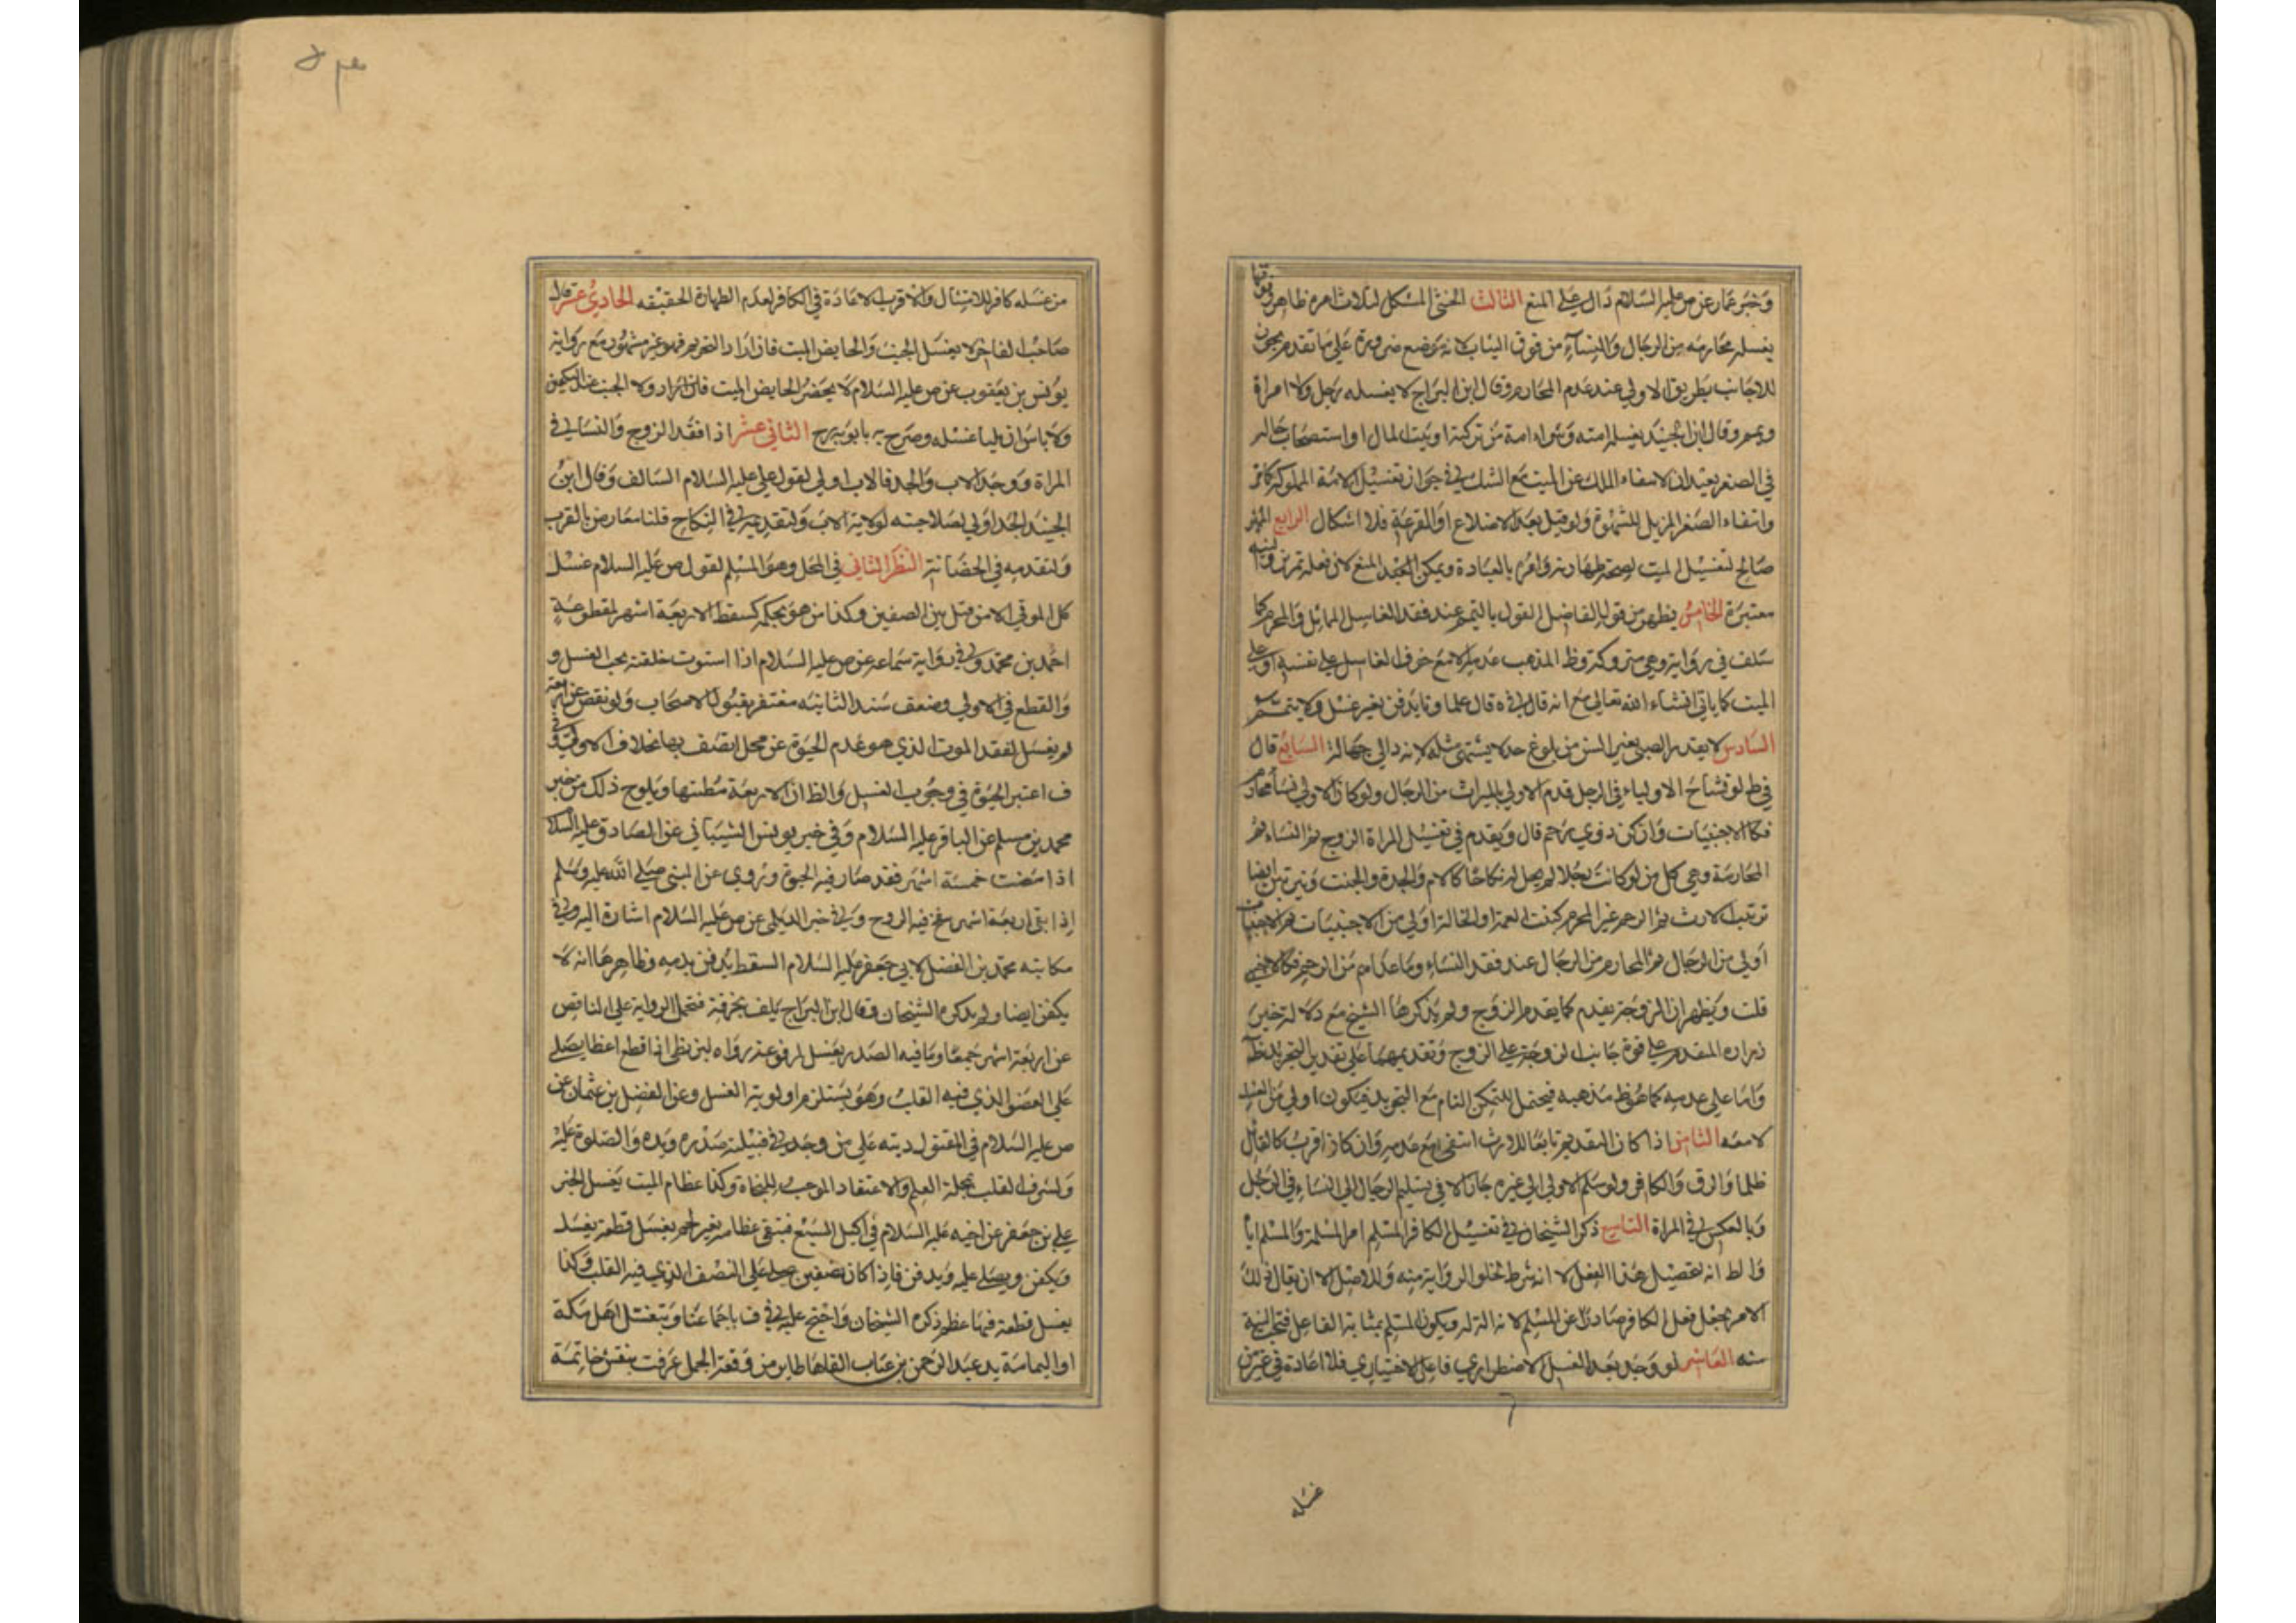 وخبر عمار عن ص عليه السلام دال على المنع الثالث الخنثى المشكل لثلاث امره ظاهر وفوقها
يغسله محارمه من الرجال والنساء من فوق الثياب لانه موضع ضرورة على ما تقدم يجوز
للاجانب بطريق الاولى عند عدم المحارم وقال ابن البراج لا يغسله رجل ولا امراة
وييمم وقال ابن الجنيد يغسله امته وشراء امة من تركته او بيت المال او استصحاب حاله
في الصغر بعيدان لانتفاء الملك عن الميت مع الشك في جواز تغسيل الامة المملوكة كما مر
وانتفاء الصغر المزيل للشهوة ولو قيل بعد الاضلاع او القرعة فلا اشكال الرابع المميز
صالح لتغسيل الميت لصحة طهارته وامره بالعبادة ويمكن المنع لان فعله تمرين ونيته
معتبرة الخامس يظهر من قول الفاضل القول بالتيمم عند فقد الغاسل المماثل والمحرم كما
سلف في رواية وهي متروكة وظ المذهب عدمه الا مع خوف الغاسل على نفسه او على
الميت كما ياتي انشاء الله تعالى مع انه قال في ة قال علماونا يدفن بغير غسل ولا يتمم
السادس لا يقدر الصبي بغير السن من بلوغ حد لا يشتهى مثله لانه رد الى جهالة السابع قال
في ط لو تشاح الاولياء في الرجل قدم الاولى بالميراث من الرجال ولو كان الاولى نساء محارم
فكالاجنبيات وان كن ذوي رحم قال ويقدم في تغسيل المراة الزوج ثم النساء ثم
المحارمة وهي كل من لو كانت رجلا لم يحل له نكاحها كالام والجدة والبنت ويترتبن ايضا
ترتيب الارث ثم الرحم غير المحرم كبنت العمة والخالة اولى من الاجنبيات ثم الاجنبيات
اولى من الرجال ثم المحارم من الرجال عند فقد النساء وما عداهم من الرحم فكالاجنبي
قلت ويظهر ان الزوجة يقدم كما يقدم الزوج ولم يذكرها الشيخ مع دلالة خبر
زراره المقدم على قوة جانب الزوجة على الزوج وتقديمهما على تقدير التجريد ظ
واما على عدمه كما هو ظ مذهبه فيحتمل للتمكن التام مع التجريد فيكون اولى من الغير
لا معه الثامن اذا كان التقديم تابعا للارث انتفى مع عدمه وان كان اقرب كالقاتل
ظلما والرق والكافر ولو سلم الاولى الى غيره جاز الا في تسليم الرجال الى النساء في الرجل
وبالعكس في المراة التاسع ذكر الشيخان في تغسيل الكافر المسلم امر المسلمة والمسلم اياه
والظ انه لتحصيل هذا الفعل لا انه شرط لخلو الرواية منه وللاصل الا ان يقال ذلك
الامر يجعل فعل الكافر صادرا عن المسلم لانه الة له ويكون المسلم بمثابة الفاعل فتجب النية
منه العاشر لو وجد بعد الغسل الاضطراري فاعل الاختياري فلا اعادة في غير من
غسله
من غسله كافر للامتثال والاقرب الاعادة في الكافر لعدم الطهارة الحقيقيه الحادي عشر قال
صاحب الفاخر لا يغسل الجنب والحايض الميت فان اراد التحريم فهو غير مشهور مع رواية
يونس بن يعقوب عن ص عليه السلام لا يحضر الحايض الميت ولا الجنب عند التلقين
ولا باس ان يليا غسله وصرح به بابويه رح الثاني عشر اذا فقد الزوج والنساء في
المراة ووجد الاب والجد فالاب اولى لقول علي عليه السلام السالف وقال ابن
الجنيد الجد اولى لصلاحيته لولاية الاب ولتقديمه في النكاح قلنا معارض بالقرب
ولتقدمه في الحضانة النظر الثاني في المحل وهو المسلم لقول ص عليه السلام غسل
كل الموتى الا من قتل بين الصفين وكذا من هو بحكمه كسقط الاربعة اشهر لمقطوعة
احمد بن محمد وفي رواية سماعه عن ص عليه السلام اذا استوت خلقته يجب الغسل و
والقطع في الاولى وضعف سند الثانية مغتفر بقبول الاصحاب ولو نقص عن اربعة
لم يغسل لفقد الموت الذي هو عدم الحيوة عن محل اتصف بها بخلاف الاول وفي
ف اعتبر الحيوة في وجوب الغسل والظ ان الاربعة مظنتها ويلوح ذلك من خبر
محمد بن مسلم عن الباقر عليه السلام وفي خبر يونس الشيباني عن الصادق عليه السلام
اذا مضت خمسة اشهر فقد صار فيه الحيوة وروي عن النبي صلى الله عليه وسلم
اذا بقي اربعة اشهر ينفخ فيه الروح وفي خبر الديلمي عن ص عليه السلام اشارة اليه وفي
مكاتبه محمد بن الفضل لابي جعفر عليه السلام السقط يدفن بدمه وظاهرها انه لا
يكفن ايضا ولم يذكره الشيخان وقال ابن البراج يلف بخرقة فتحمل الرواية على الناقص
عن اربعة اشهر جمعا وما فيه الصدر يغسل لمرفوعة رواه البزنطي اذا قطع اعضا يصلى
على العضو الذي فيه القلب وهو يستلزم اولوية الغسل وعن الفضل بن عثمان عن
ص عليه السلام في المقتول ديته على من وجد في قبيلته صدره ويده والصلوة عليه
ولشرف القلب بمحلة العلم والاعتقاد الموجب للنجاة وكذا عظام الميت يغسل لخبر
علي بن جعفر عن اخيه عليه السلام في اكيل السبع فتبقى عظامه بغير لحم يغسل قطعة يغسل
ويكفن ويصلى عليه ويدفن فاذا كان نصفين صلى على النصف الذي فيه القلب وكذا
يغسل قطعة فيها عظم ذكره الشيخان واحتج عليه في ف باجماعنا وبتغسيل اهل مكة
او اليمامة يد عبد الرحمن بن عتاب القاها طاير من وقعة الجمل عرفت بنقش خاتمه